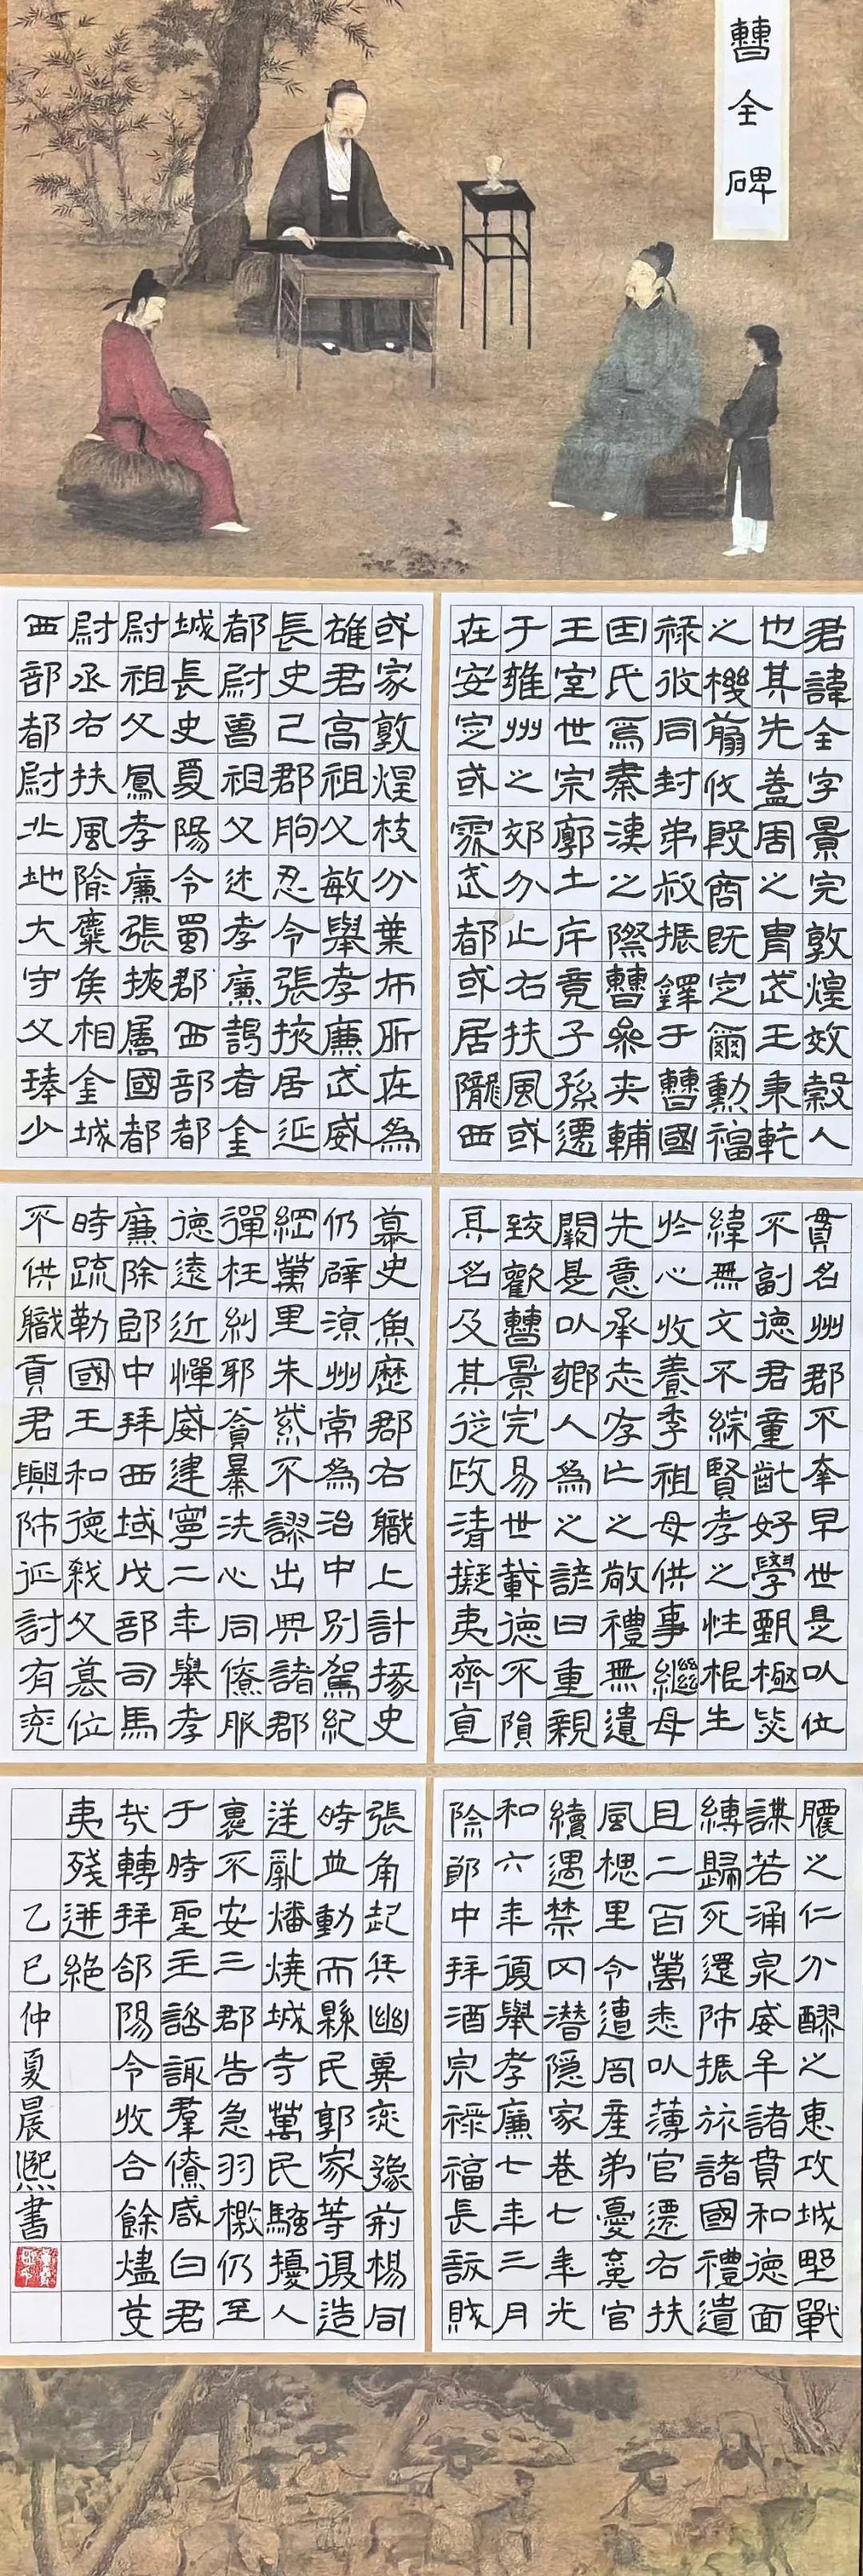 曹全碑
君諱全字景完敦煌效穀人
也其先蓋周之胄武王秉乾
之機翦伐殷商既定爾勳福
祿攸同封弟叔振鐸于曹國
因氏焉秦漢之際曹參夾輔
王室世宗廓土斥竟子孫遷
于雍州之郊分止右扶風或
在安定或處武都或居隴西
或家敦煌枝分葉布所在為
雄君高祖父敏舉孝廉武威
長史巴郡朐忍令張掖居延
都尉曾祖父述孝廉謁者金
城長史夏陽令蜀郡西部都
尉祖父鳳孝廉張掖屬國都
尉丞右扶風隃麋侯相金城
西部都尉北地大守父琫少
貫名州郡不幸早世是以位
不副德君童齔好學甄極毖
緯無文不綜賢孝之性根生
於心收養季祖母供事繼母
先意承志存亡之敬禮無遺
闕是以鄉人為之諺曰重親
致歡曹景完易世載德不隕
其名及其從政清擬夷齊直
慕史魚歷郡右職上計掾史
仍辟涼州常為治中別駕紀
綱萬里朱紫不謬出典諸郡
彈枉糾邪貪暴洗心同僚服
德遠近憚威建寧二年舉孝
廉除郎中拜西域戊部司馬
時疏勒國王和德弒父篡位
不供職貢君興師征討有兗
膿之仁分醪之惠攻城野戰
謀若涌泉威牟諸賁和德面
縛歸死還師振旅諸國禮遺
且二百萬悉以薄官遷右扶
風槐里令遭同產弟憂棄官
續遇禁网潛隱家巷七年光
和六年復舉孝廉七年三月
除郎中拜酒宗祿福長訞賊
張角起兵幽冀兗豫荊楊同
時並動而縣民郭家等復造
逆亂燔燒城寺萬民騷擾人
裹不安三郡告急羽檄仍至
于時聖主諮諏羣僚咸曰君
哉轉拜郃陽令收合餘燼芟
夷殘迸絕
乙巳仲夏晨熙書